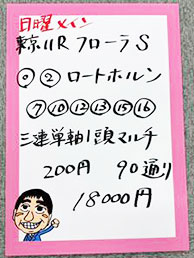 日曜メイン
東京11R フローラS
◎ ② ロードホルン
⑦⑩⑫⑬⑮⑯
三連単軸1頭マルチ
200円 90通り
18000円